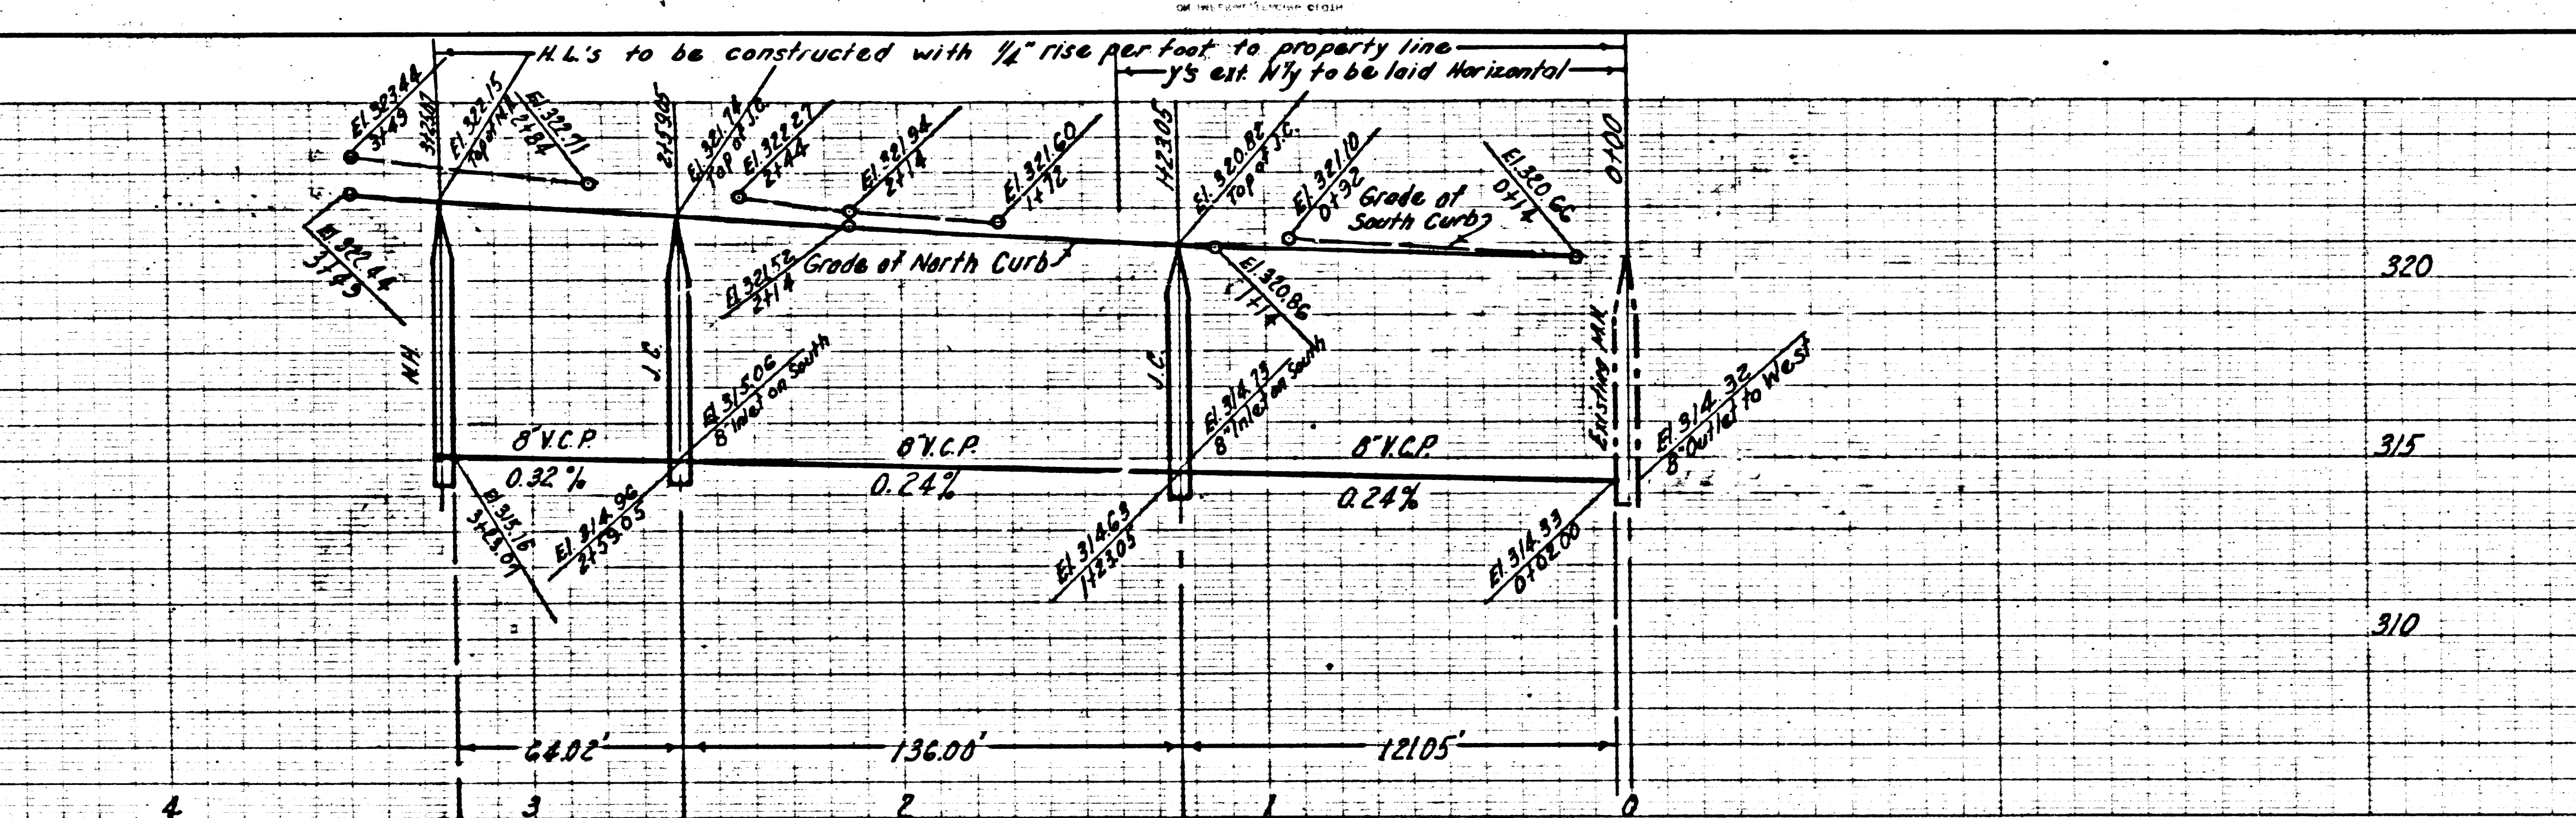 H.L.'s to be constructed with 1/4" rise per foot to property line
Y's ext. N'ly to be laid Horizontal
El. 323.44
3+49
El. 322.15
El. 322.71
2+84
2+59.05
El. 321.74
Top of J.C.
El. 322.27
2+44
El. 321.94
2+14
El. 321.60
1+72
1+23.05
El. 320.82
Top of J.C.
El. 321.10
0+92
Grade of
South Curb
El. 320.66
0+14
0+00
El. 322.44
3+49
El. 321.52
2+14
Grade of North Curb
El. 320.86
1+14
320
J.C.
J.C.
Existing M.H.
El. 315.06
8" Inlet on South
El. 314.73
8" Inlet on South
El. 314.32
8" Outlet to West
8" V.C.P.
8" V.C.P.
8" V.C.P.
315
0.32%
0.24%
0.24%
El. 315.16
El. 314.96
2+59.05
El. 314.63
1+23.05
El. 314.33
0+02.00
310
64.02'
136.00'
121.05'
4
3
2
1
0